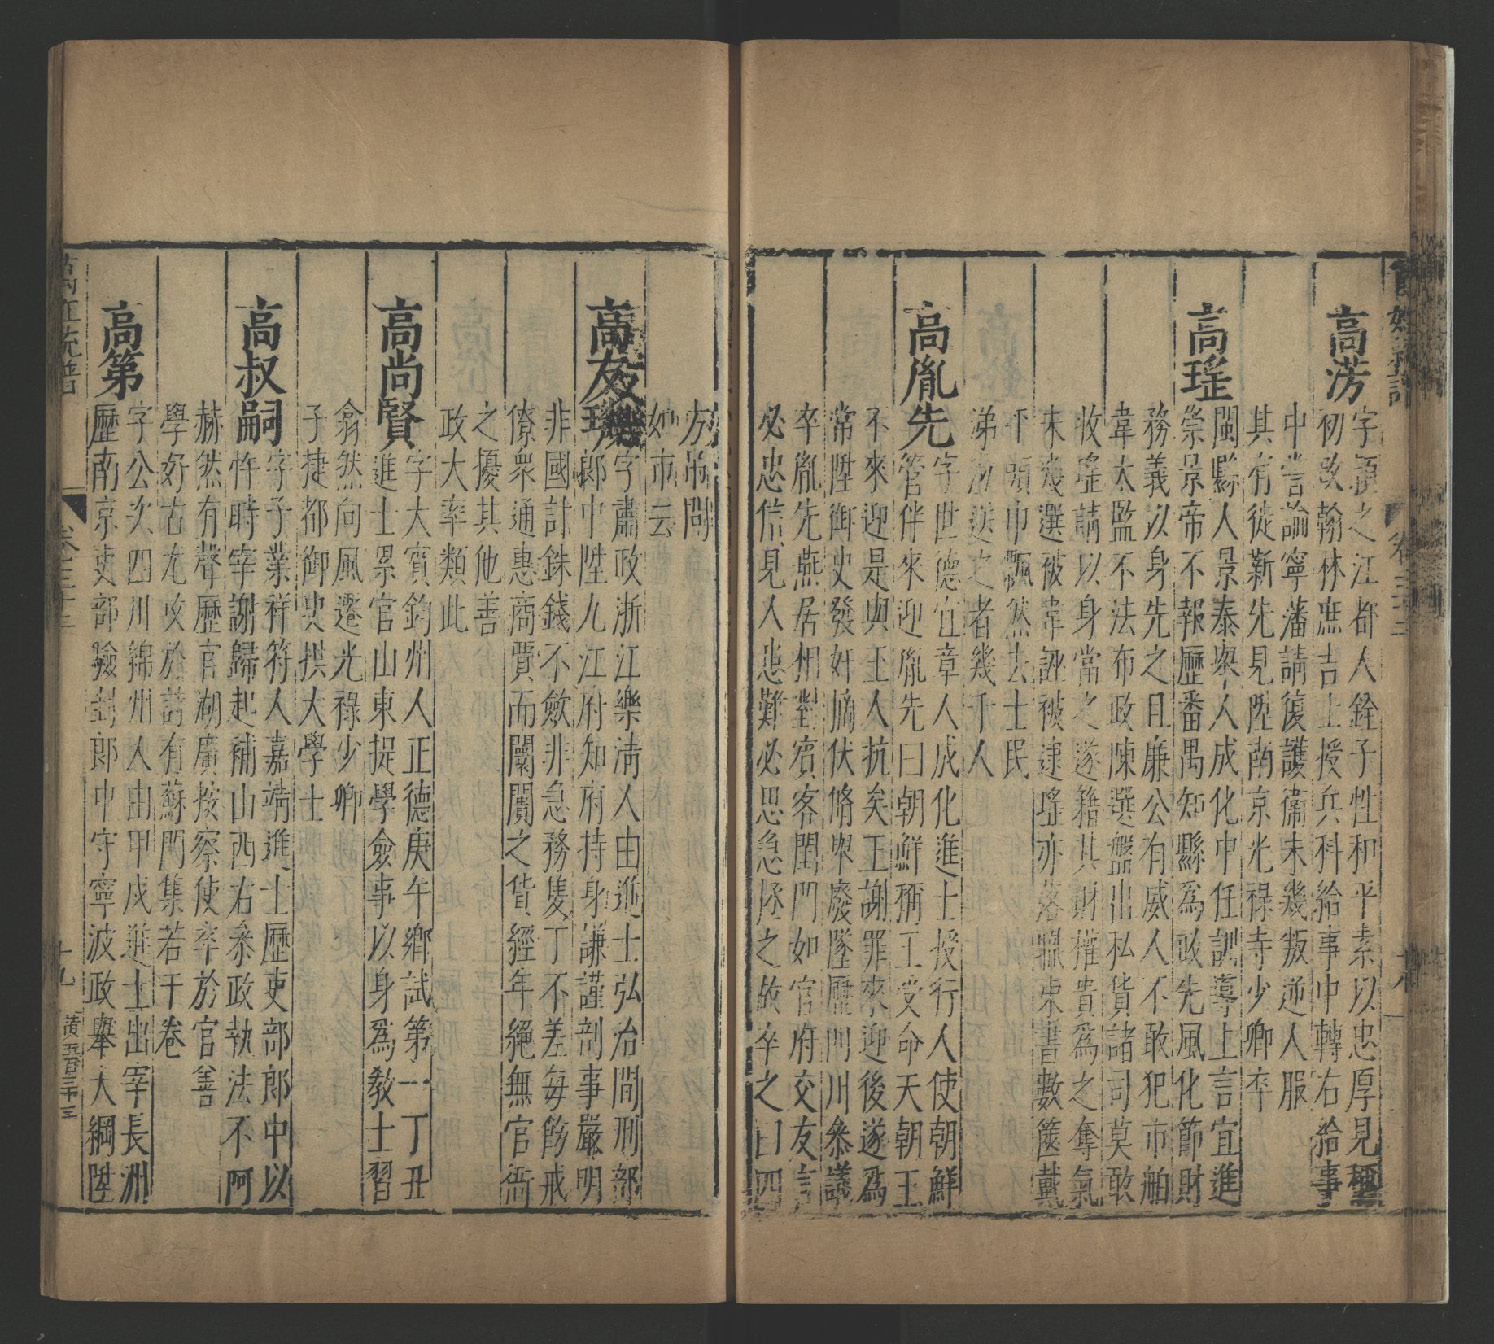 高汸
字頴之江都人銓子性和平素以忠厚見稱
初改翰林庶吉士授兵科給事中轉右給事
中嘗論寧藩請復護衞未幾叛逆人服
其有徙薪先見陞南京光禄寺少卿卒
高瑤
閩縣人景泰舉人成化中任訓導上言宜進
崇景帝不報歷番禺知縣為政先風化節財
務義以身先之且廉公有威人不敢犯市舶
韋太監不法布政陳選盤出私貨諸司莫敢
收瑤請以身當之遂籍其財權貴為之奪氣
未幾選被韋誣被逮瑤亦落職束書數篋戴
平頭巾飄然去士民
涕泣送之者幾千人
高胤先
字世德宜章人成化進士授行人使朝鮮
管伴來迎胤先曰朝鮮稱王受命天朝王
不來迎是與王人抗矣王謝罪來迎後遂為
常陞御史發奸擿伏脩舉廢墜歷四川叅議
卒胤先燕居相對賓客閨門如官府交友言
必忠信見人患難必思急拯之故卒之日四
方吊問
如市云
高友璣
字肅政浙江樂清人由進士弘治間刑部
郎中陞九江府知府持身謙謹剖事嚴明
非國計銖錢不斂非急務隻丁不差每飭戒
僚衆通惠商賈而闤闠之貨經年絕無官衙
之擾其他善
政大率類此
高尚賢
字大賓鈞州人正德庚午鄉試第一丁丑
進士累官山東提學僉事以身為教士習
翕然向風遷光祿少卿
子捷都御史拱大學士
高叔嗣
字子業祥符人嘉靖進士歷吏部郎中以
忤時宰謝歸起補山西右叅政執法不阿
赫然有聲歷官湖廣按察使卒於官善
學好古尤攻於詩有蘇門集若干卷
高第
字公次四川綿州人由甲戌進士出宰長洲
歷南京吏部驗封郎中守寧波政舉大綱陞
萬姓統譜
卷三十三
十九